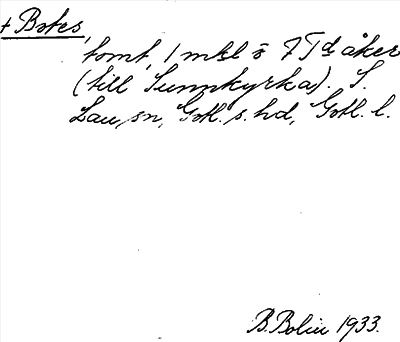 + Botes,
tomt, 1 mtl o 7 Td åker
(till Sunnkyrka). S.
Lau sn, Gotl. s. hd, Gotl. l.
B. Bolin 1933.